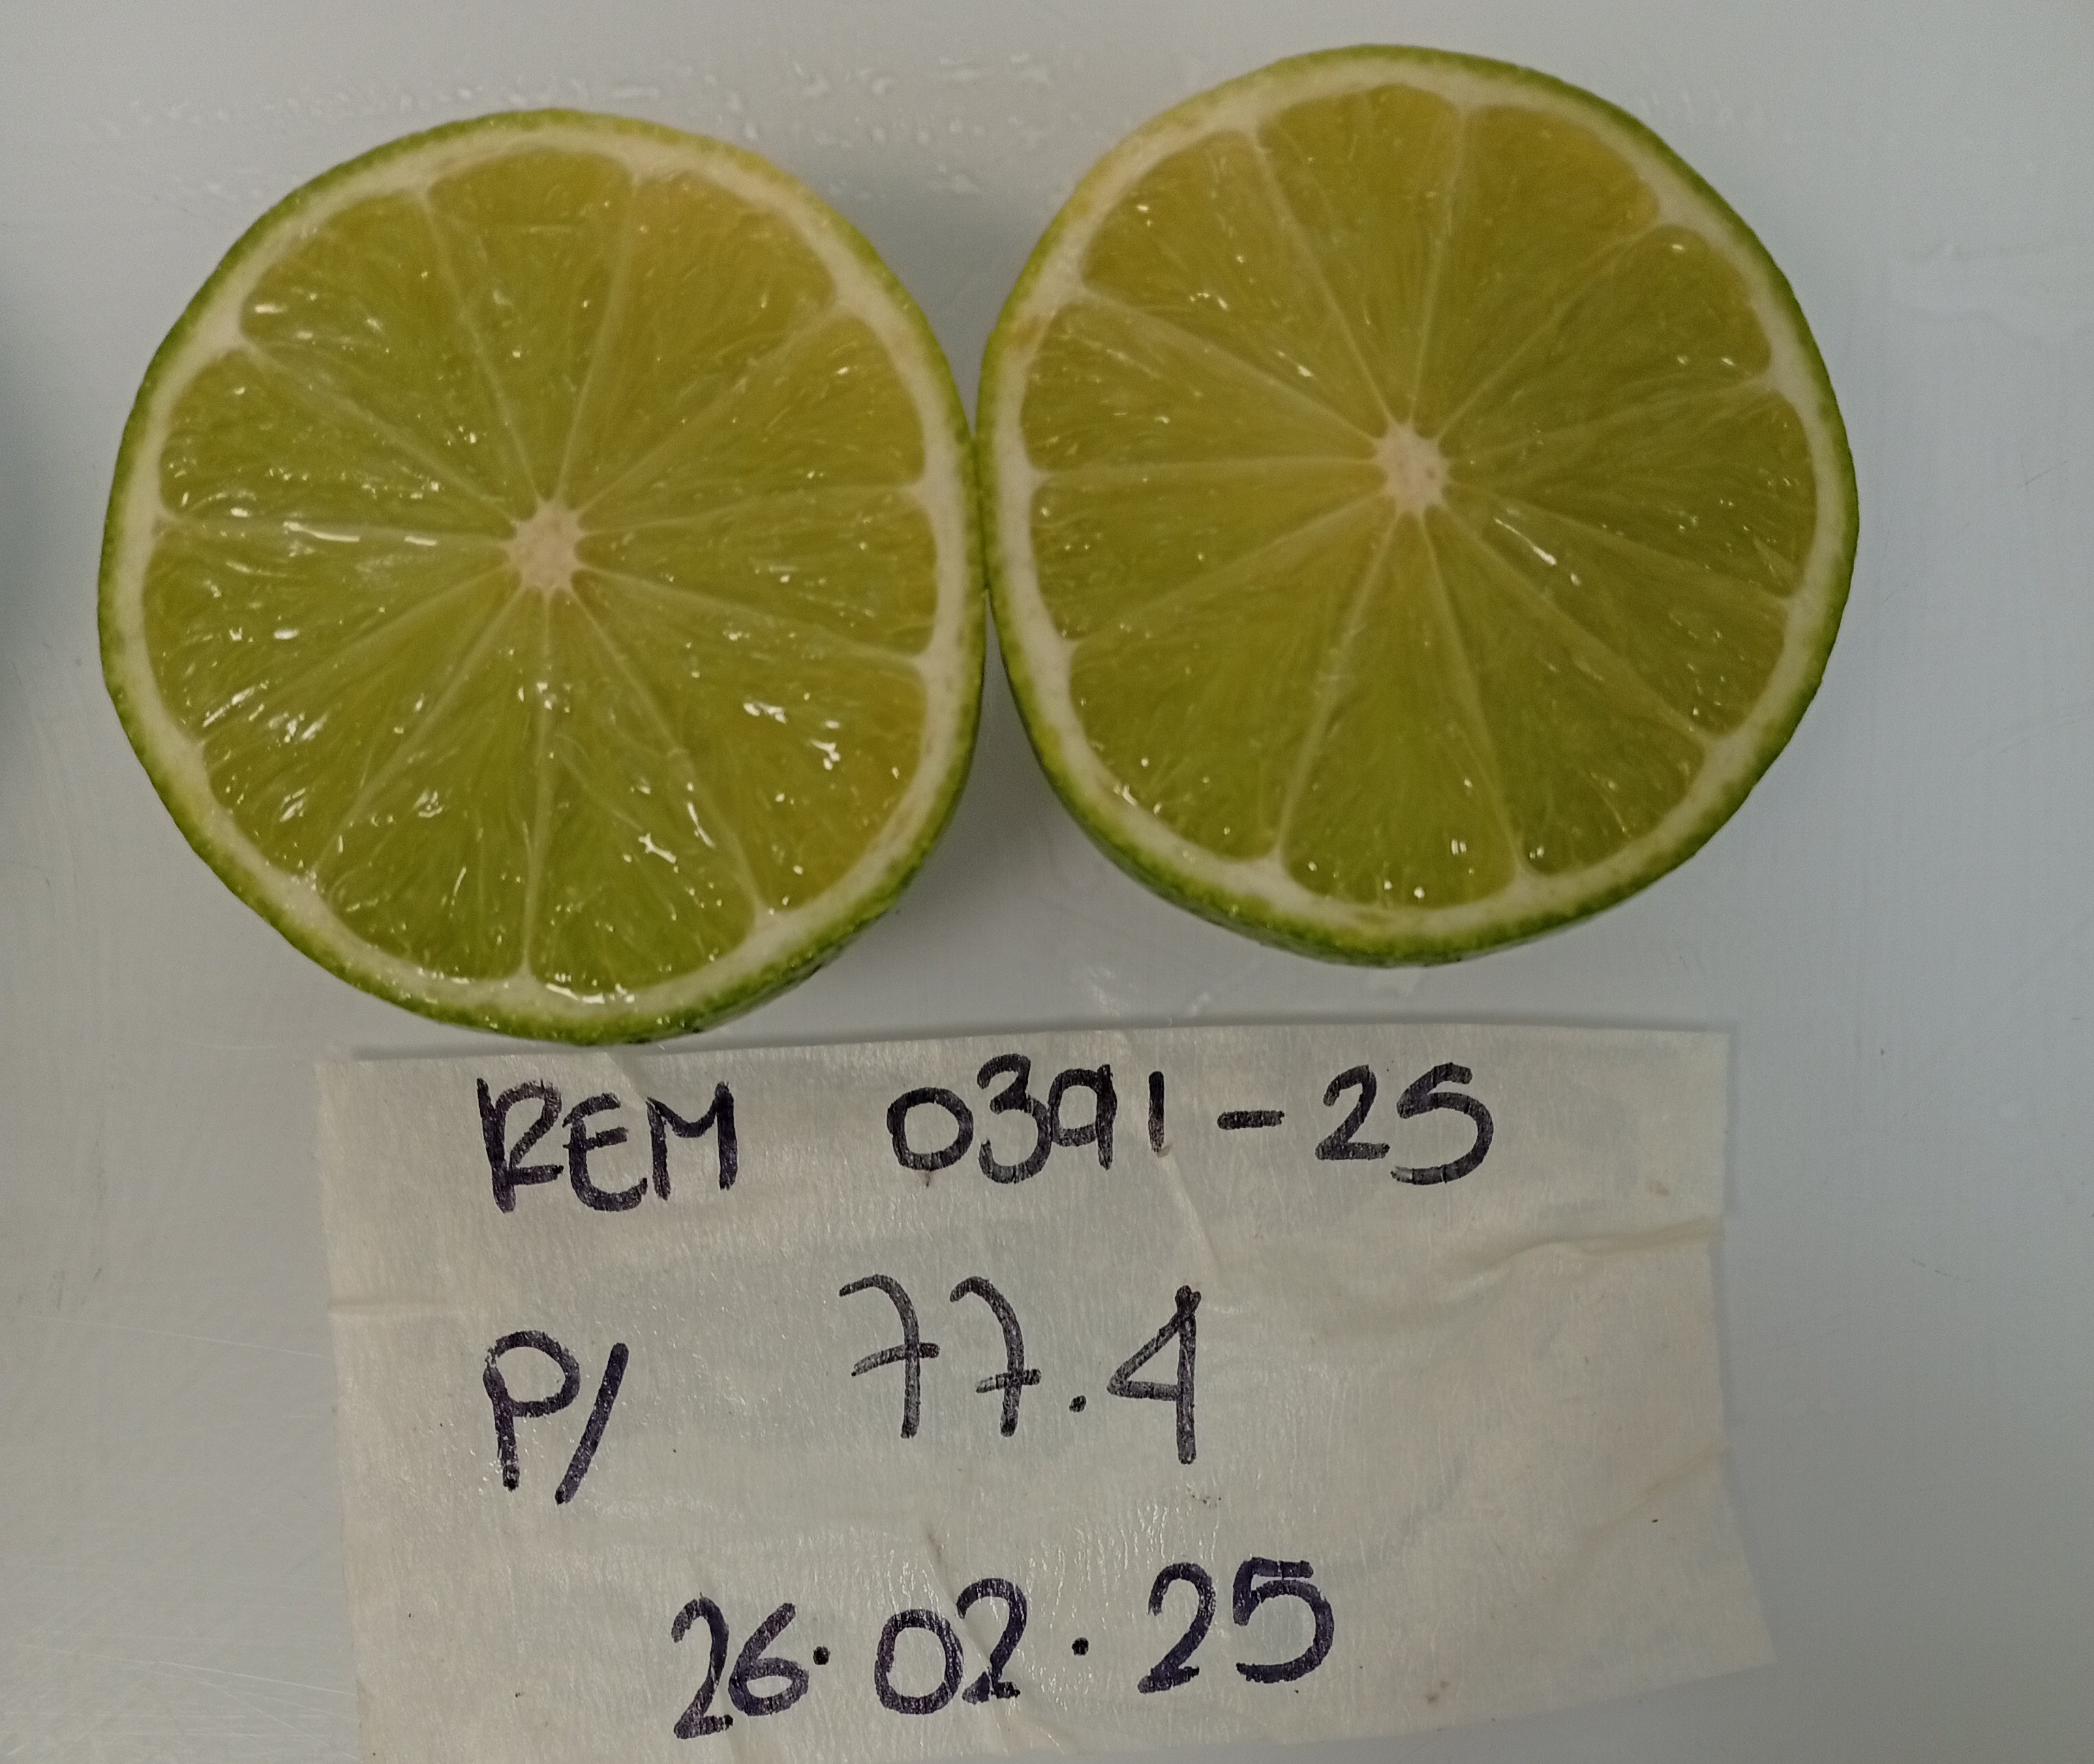 REM 0391-25
P/ 77.4
26.02.25